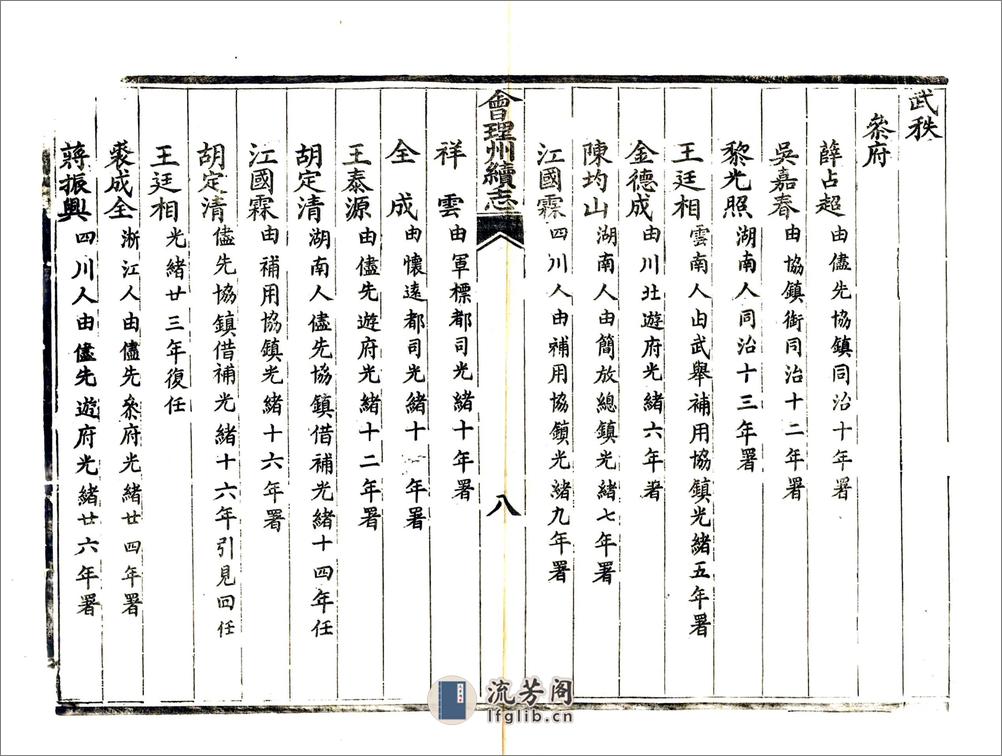 武秩
叅府
薛占超 由儘先協鎮同治十年署
吳嘉春 由協鎮銜同治十二年署
黎光照 湖南人同治十三年署
王廷相 雲南人由武舉補用協鎮光緒五年署
金德成 由川北遊府光緒六年署
陳均山 湖南人由簡放總鎮光緒七年署
江國霖 四川人由補用協鎮光緒九年署
會理州續志
八
祥雲 由軍標都司光緒十年署
全成 由懷遠都司光緒十一年署
王泰源 由儘先遊府光緒十二年署
胡定清 湖南人儘先協鎮借補光緒十四年任
江國霖 由補用協鎮光緒十六年署
胡定清 儘先協鎮借補光緒十六年引見回任
王廷相 光緒廿三年復任
裘成全 浙江人由儘先叅府光緒廿四年署
蔣振興 四川人由儘先遊府光緒廿六年署
流芳阁
lfglib.cn